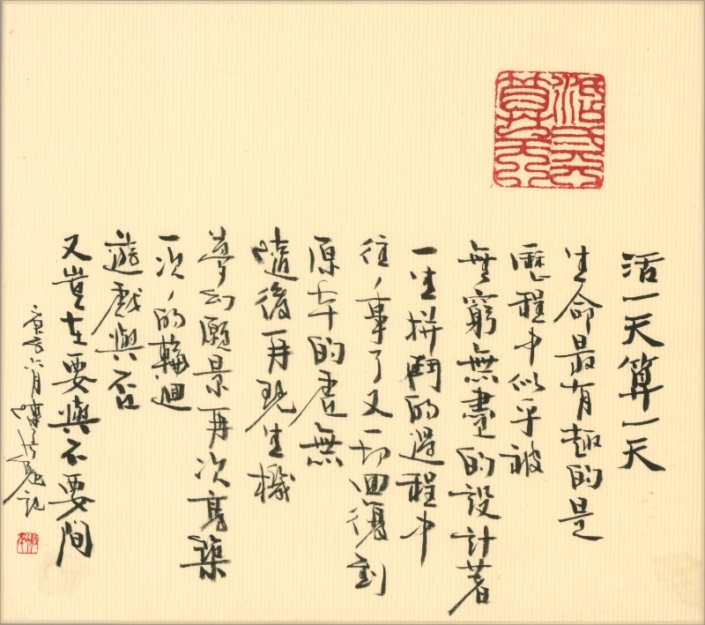 活一天算一天
生命最有趣的是
歷程中似乎被
無窮無盡的設計著
一生拼鬥的過程中
往往事了又一切回復到
原本的虛無
隨後再現生機
夢幻願景再次高築
一次次的輪迴
遊戲與否
又豈在要與不要間
庚 六月 記